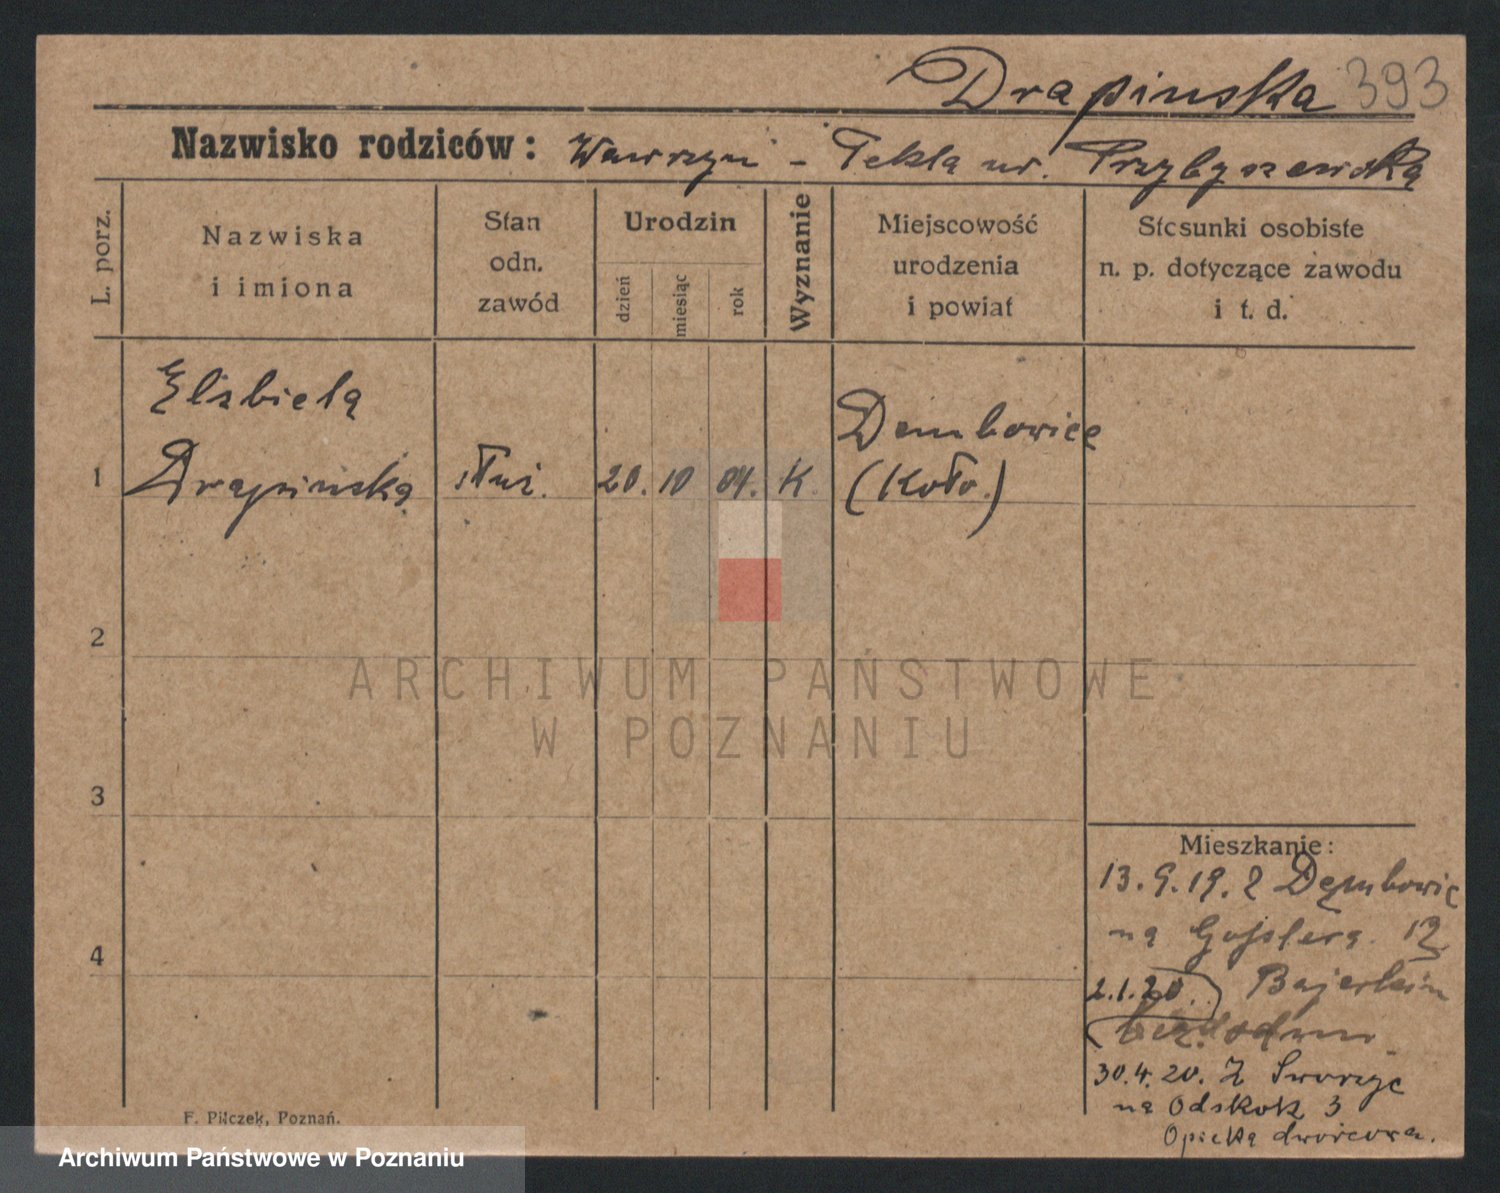 Drapinska 393
Nazwisko rodziców: Wawrzyn - Tekla ur. Przybyszewska
L. porz.
Nazwiska
i imiona
Stan
odn.
zawód
Urodzin
dzień
miesiąc
rok
Wyznanie
Miejscowość
urodzenia
i powiat
Stosunki osobiste
n. p. dotyczące zawodu
i t. d.
Elzbieta
Dembowice
1 Drapinska służ. 20. 10 04. K. (Koło.)
2
3
4
Mieszkanie:
13. 9. 19. Z Dembowic
na Gosslera. 12
2.1.20.
30.4.20. Z Sworzyc
na Odskok 3
Opieka dworcowa.
F. Pilczek, Poznań.
ARCHIWUM PAŃSTWOWE
W POZNANIU
Archiwum Państwowe w Poznaniu